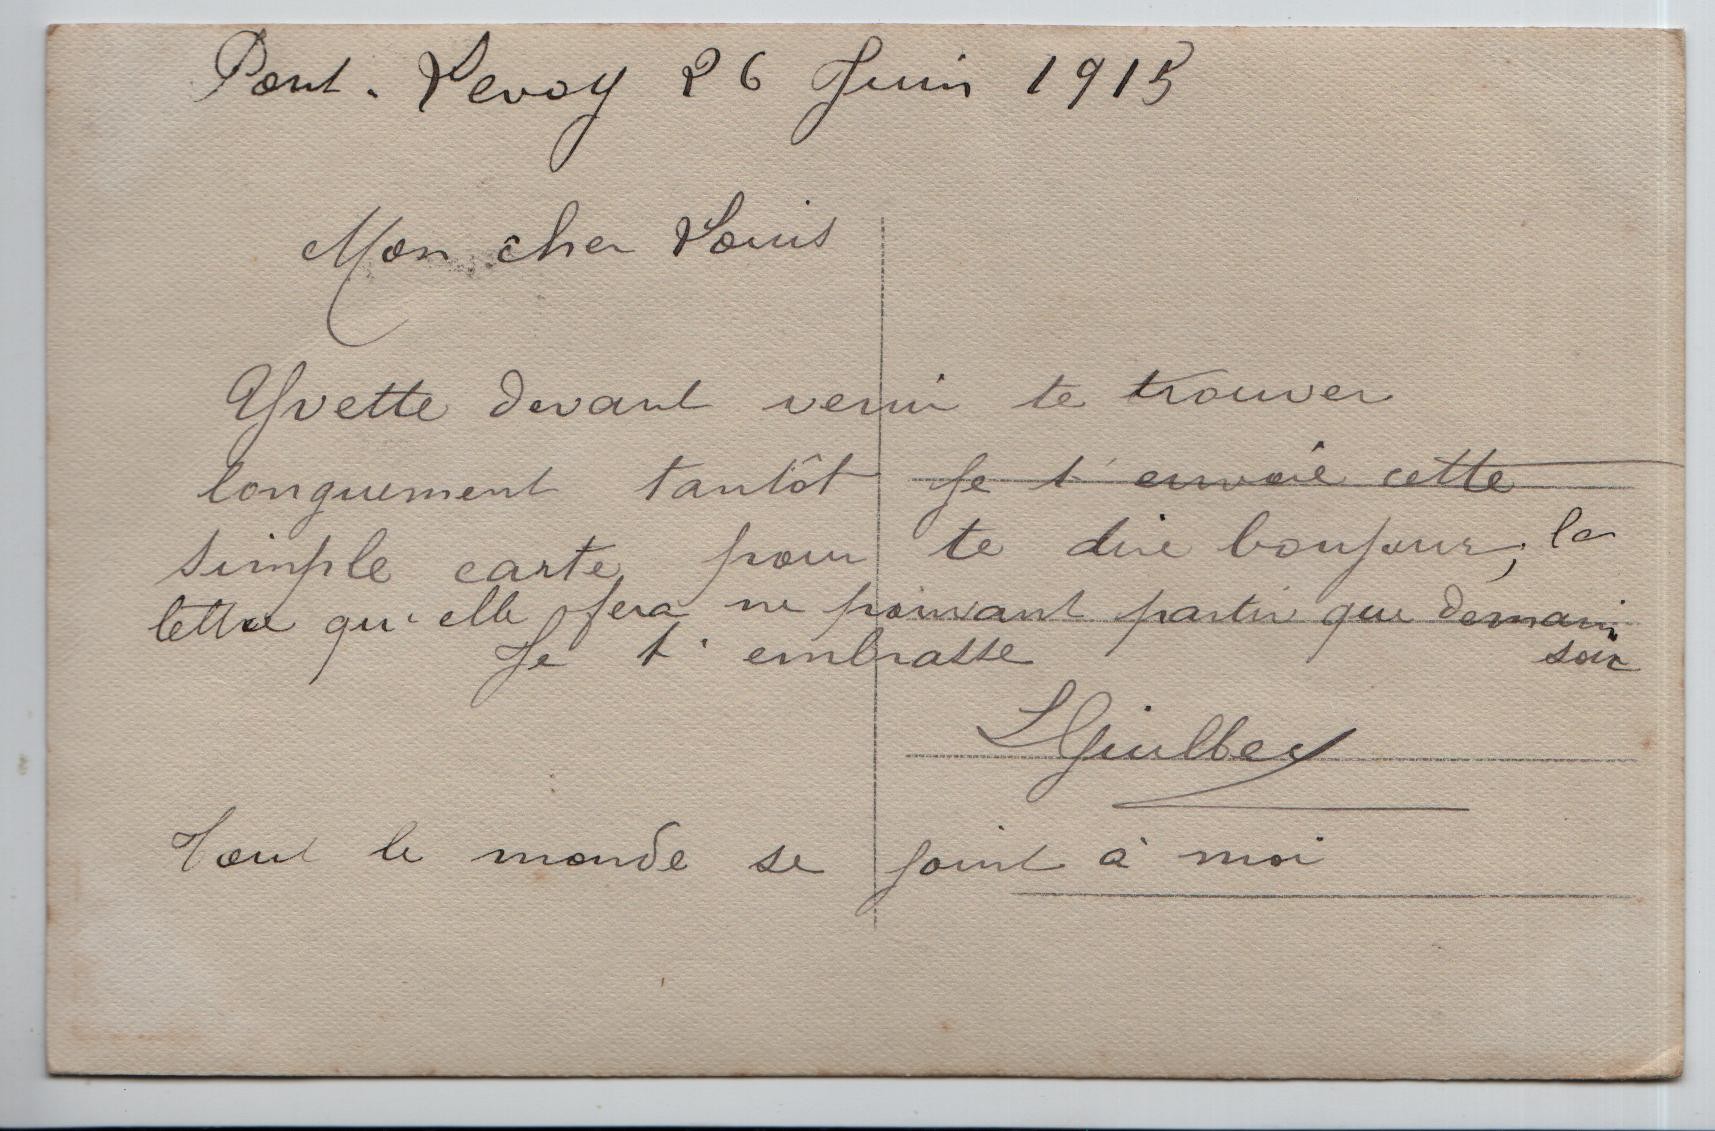 Pont-Levoy 26 Juin 1915
Mon cher Louis
Yvette devant venir te trouver
longuement tantôt je t'envoie cette
simple carte pour te dire bonjour, la
lettre qu'elle fera ne pouvant partir que demain
soir
Je t'embrasse
LGuilbey
Tout le monde se joint à moi